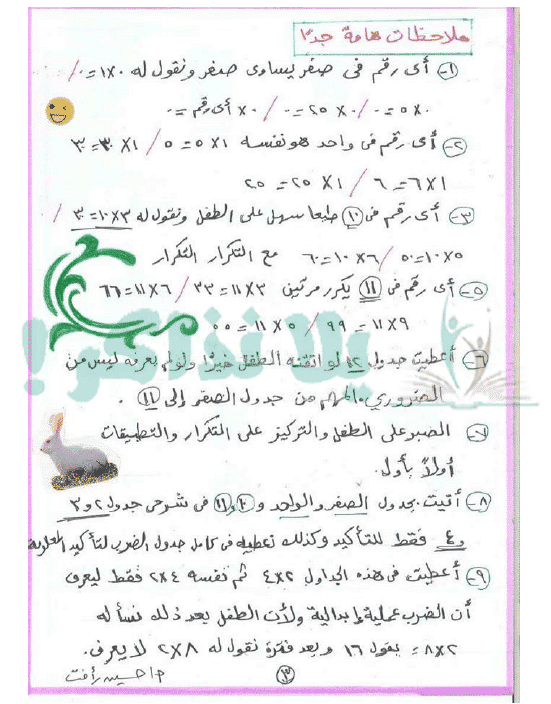 ملاحظات هامة جدًا
١- أى رقم فى صفر يساوى صفر ونقول له ١×٠=٠ /
٥×٠=٠ / ٢٥×٠=٠ / ٠×أى رقم=٠
٢- أى رقم فى واحد هو نفسه ١×٥=٥ / ١×٣=٣
١×٦=٦ / ١×٢٥=٢٥
٣- أى رقم فى ١٠ طبعا سهل على الطفل ونقول له ٣×١٠=٣٠ /
٥×١٠=٥٠ / ٦×١٠=٦٠ مع التكرار التكرار
٥- أى رقم فى ١١ يكرر مرتين ٣×١١=٣٣ / ٦×١١=٦٦
٩×١١=٩٩ / ٥×١١=٥٥
٦- أعطيت جدول ١٢ لو اتقنه الطفل خيرًا ولو لم يعرفه ليس من
الضرورى. المهم من جدول الصفر إلى ١١.
٧- الصبر على الطفل والتركيز على التكرار والتطبيقات
أولاً بأول.
٨- أتيت بجدول الصفر والواحد و ١٠ و ١١ فى شرحى جدول ٢ و ٣
و ٤ فقط للتأكيد وكذلك تعطيه فى كامل جدول الضرب لتأكيد المعلومة
٩- أعطيت فى هذه الجداول ٢×٤ ثم نفسه ٤×٢ فقط ليعرف
أن الضرب عملية إبدالية ولأن الطفل بعد ذلك نسأله
٢×٨= يقول ١٦ وبعد فترة نقول له ٨×٢ لا يعرف.
٣
أ/حسين رأفت
يلا نذاكر!